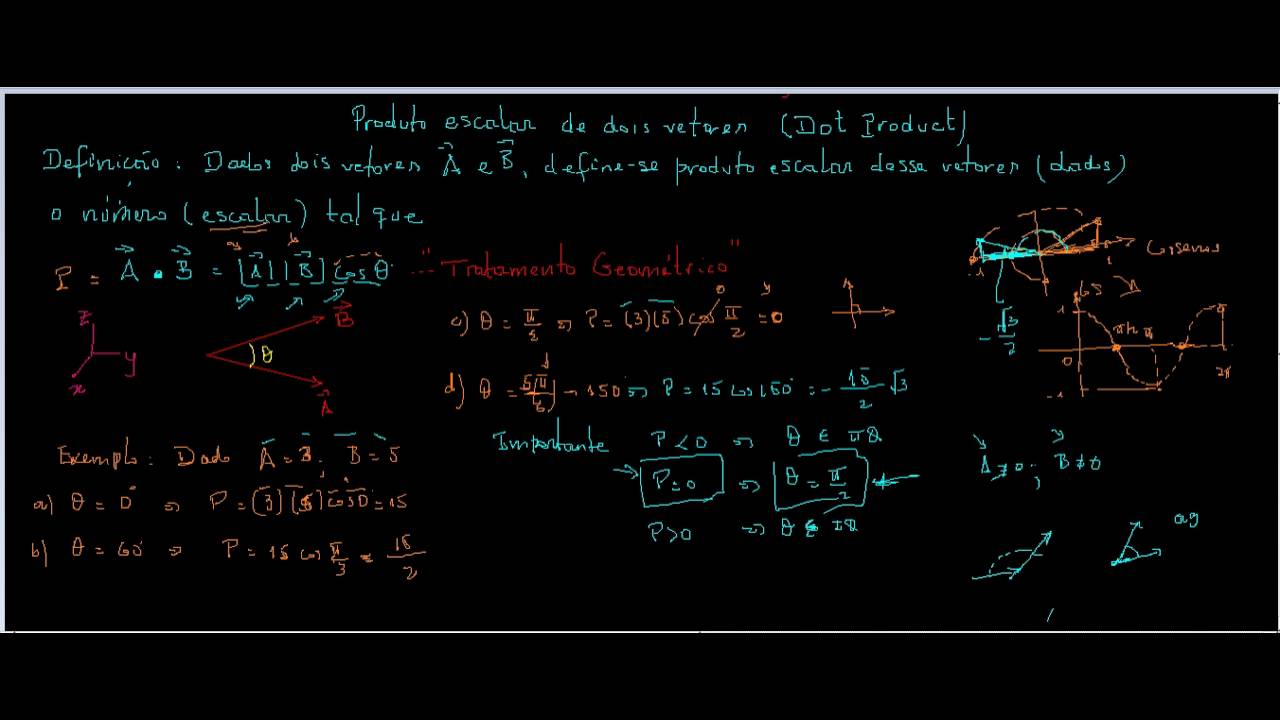 Produto escalar de dois vetores (Dot Product)
Definição: Dados dois vetores A⃗ e B⃗, define-se produto escalar desse vetores (dados)
o número (escalar) tal que
P = A⃗ • B⃗ = |A⃗||B⃗| cos θ ... "Tratamento Geométrico"
z
y
x
B⃗
θ
A⃗
c) θ = π/2 ⇒ P = (3)(5) cos π/2 = 0
0
d) θ = 5π/6 → 150° ⇒ P = 15 cos 150° = - 15/2 √3
Exemplo: Dado A = 3; B = 5
a) θ = 0° ⇒ P = (3)(5) cos 0 = 15
b) θ = 60° ⇒ P = 15 cos π/3 = 15/2
Importante
P < 0 ⇒ θ ∈ II Q
P = 0 ⇒ θ = π/2
P > 0 ⇒ θ ∈ I Q
-1
1
Cosenos
- √3/2
1
0
-1
2π
A ≠ 0; B ≠ 0